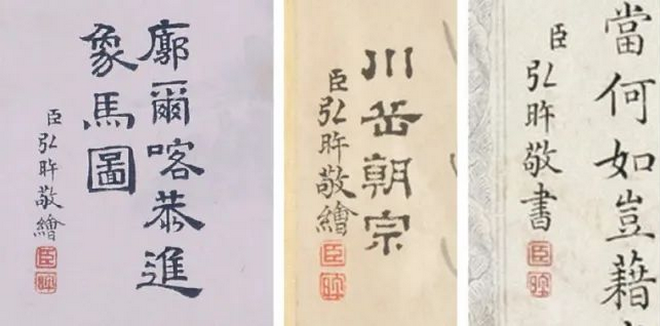 廓爾喀恭進
象馬圖
臣弘旿敬繪
臣
旿
川岳朝宗
臣弘旿敬繪
臣
旿
當何如豈藉
臣弘旿敬書
臣
旿